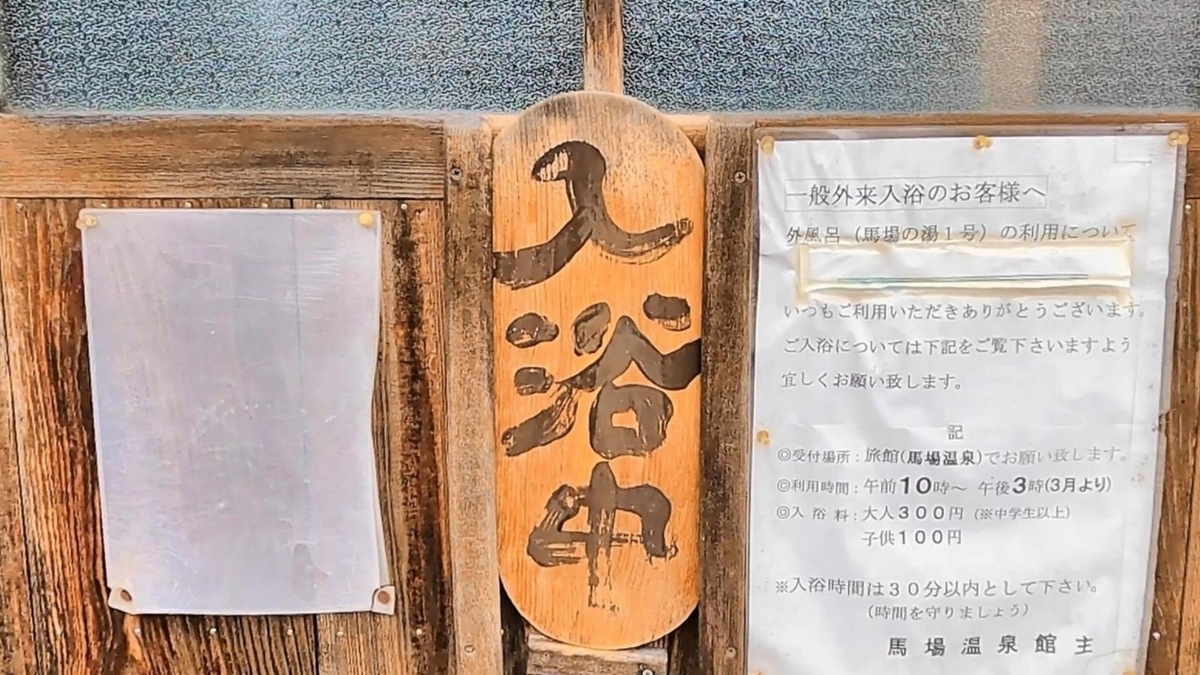 入浴中
一般外来入浴のお客様へ
外風呂（馬場の湯１号）の利用について
いつもご利用いただきありがとうございます。
ご入浴については下記をご覧下さいますよう
宜しくお願い致します。
記
◎受付場所：旅館(馬場温泉)でお願い致します。
◎利用時間：午前10時～ 午後3時(3月より)
◎入 浴 料：大人３００円（※中学生以上）
子供１００円
※入浴時間は３０分以内として下さい。
（時間を守りましょう）
馬 場 温 泉 館 主